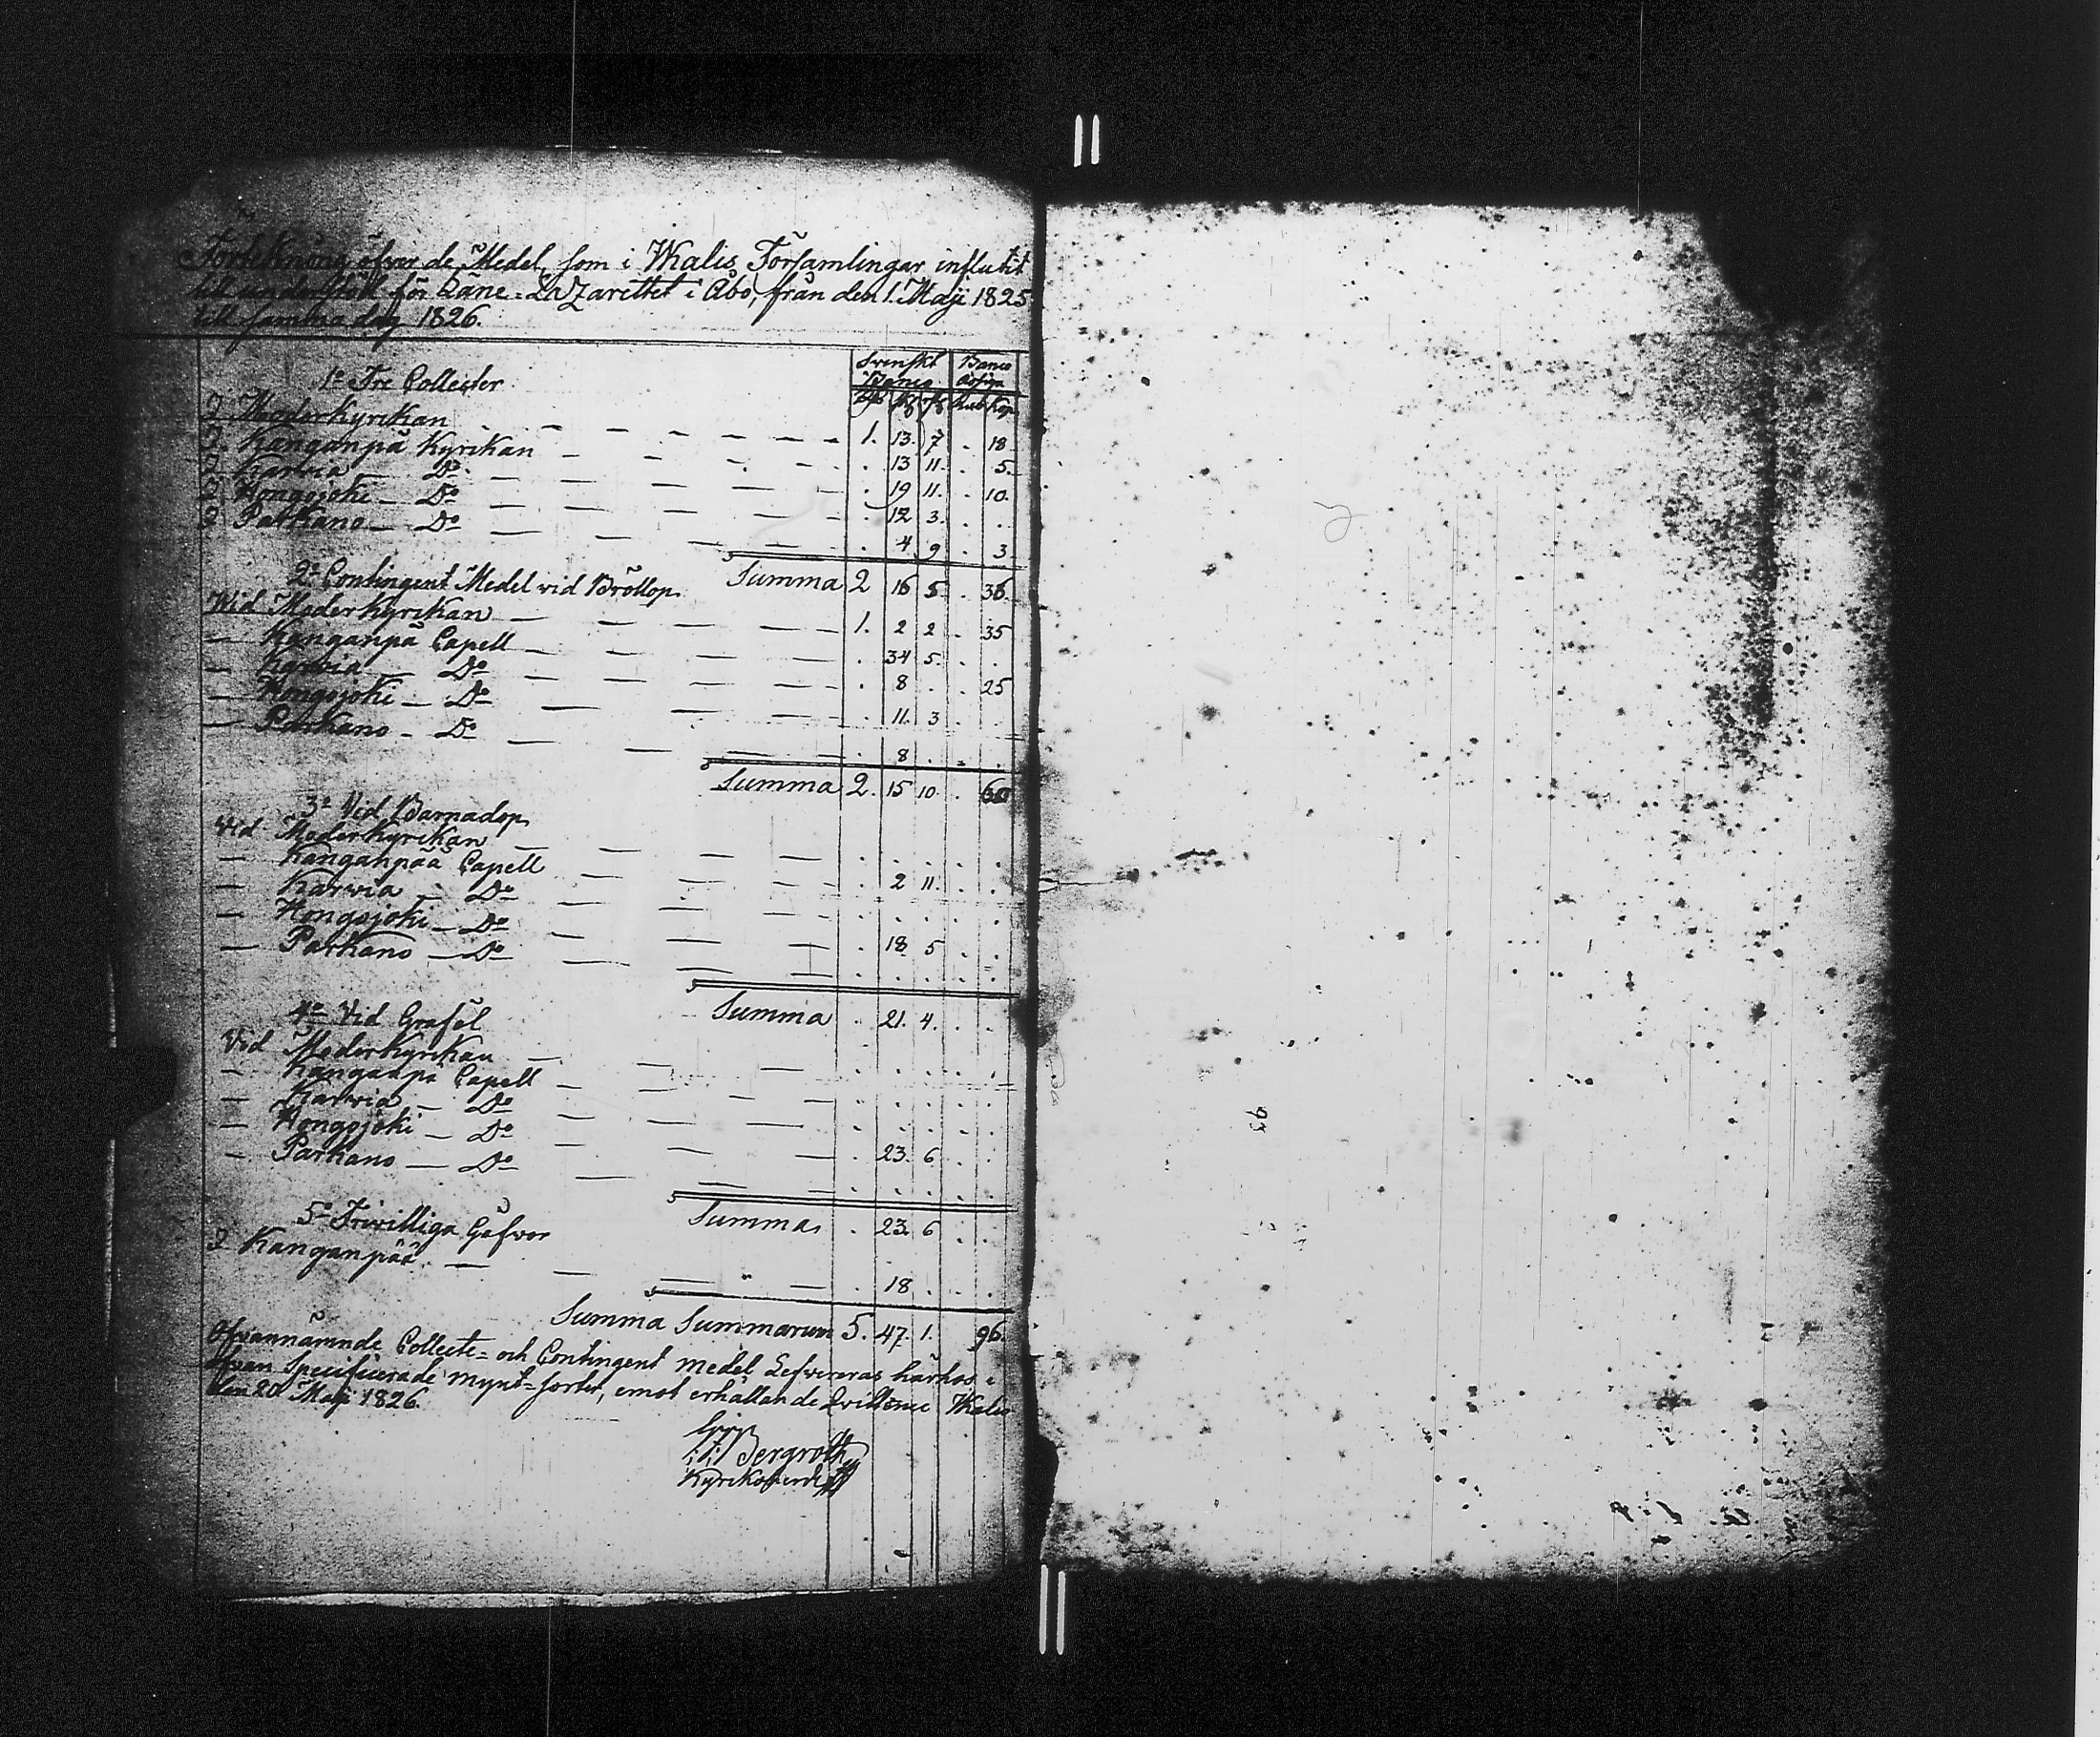 Förtekning öfver de Medel, som i Ikalis Församlingar influtit
till underhåll för Läne-Lazarettet i Åbo, från den 1. Maji 1825
till samma dag 1826.
Svenskt Banco | Banco Assign.
Rdr | sk | rst | Rub | Kop
1º Tre Collecter
I Moderkyrkan — 1. 13. 7 . 18
I Kanganpä Kyrkan — . 13 11. . 5.
I Karvia — Dº — . 19 11. . 10.
I Hongojoki — Dº — . 12 3. . .
I Parkano — Dº — . 4 9 . 3
Summa 2 16 5. . 36
2º Contingent Medel vid Bröllop.
Wid Moderkyrkan — 1. 2 2 . 35
— Kanganpä Capell — . 34 5. . .
— Karvia — Dº — . 8 . . 25
— Hongojoki — Dº — . 11. 3 . .
— Parkano — Dº — . 8 . . .
Summa 2. 15 10. . 60
3º Vid Barnadop
Vid Moderkyrkan — . . . . .
— Kanganpää Capell — . 2 11. . .
— Karvia — Dº — . . . . .
— Hongojoki — Dº — . 18 5 . .
— Parkano — Dº — . . . . .
Summa . 21. 4. . .
4º Vid Graföl
Vid Moderkyrkan — . . . . .
— Kanganpä Capell — . . . . .
— Karvia — Dº — . . . . .
— Hongojoki — Dº — . 23. 6 . .
— Parkano — Dº — . . . . .
Summa . 23. 6 . .
5º Friwilliga Gåfvor
I Kanganpää — . 18 . . .
Summa Summarum 5. 47. 1. 96.
Ofvannämnde Collecte- och Contingent medel Lefvereras härhos i
ofvan Specificerade mynt-sorter, emot erhållande Qvittence Ikalis
den 20 Maji 1826.
Bergroth
Kyrkoherde